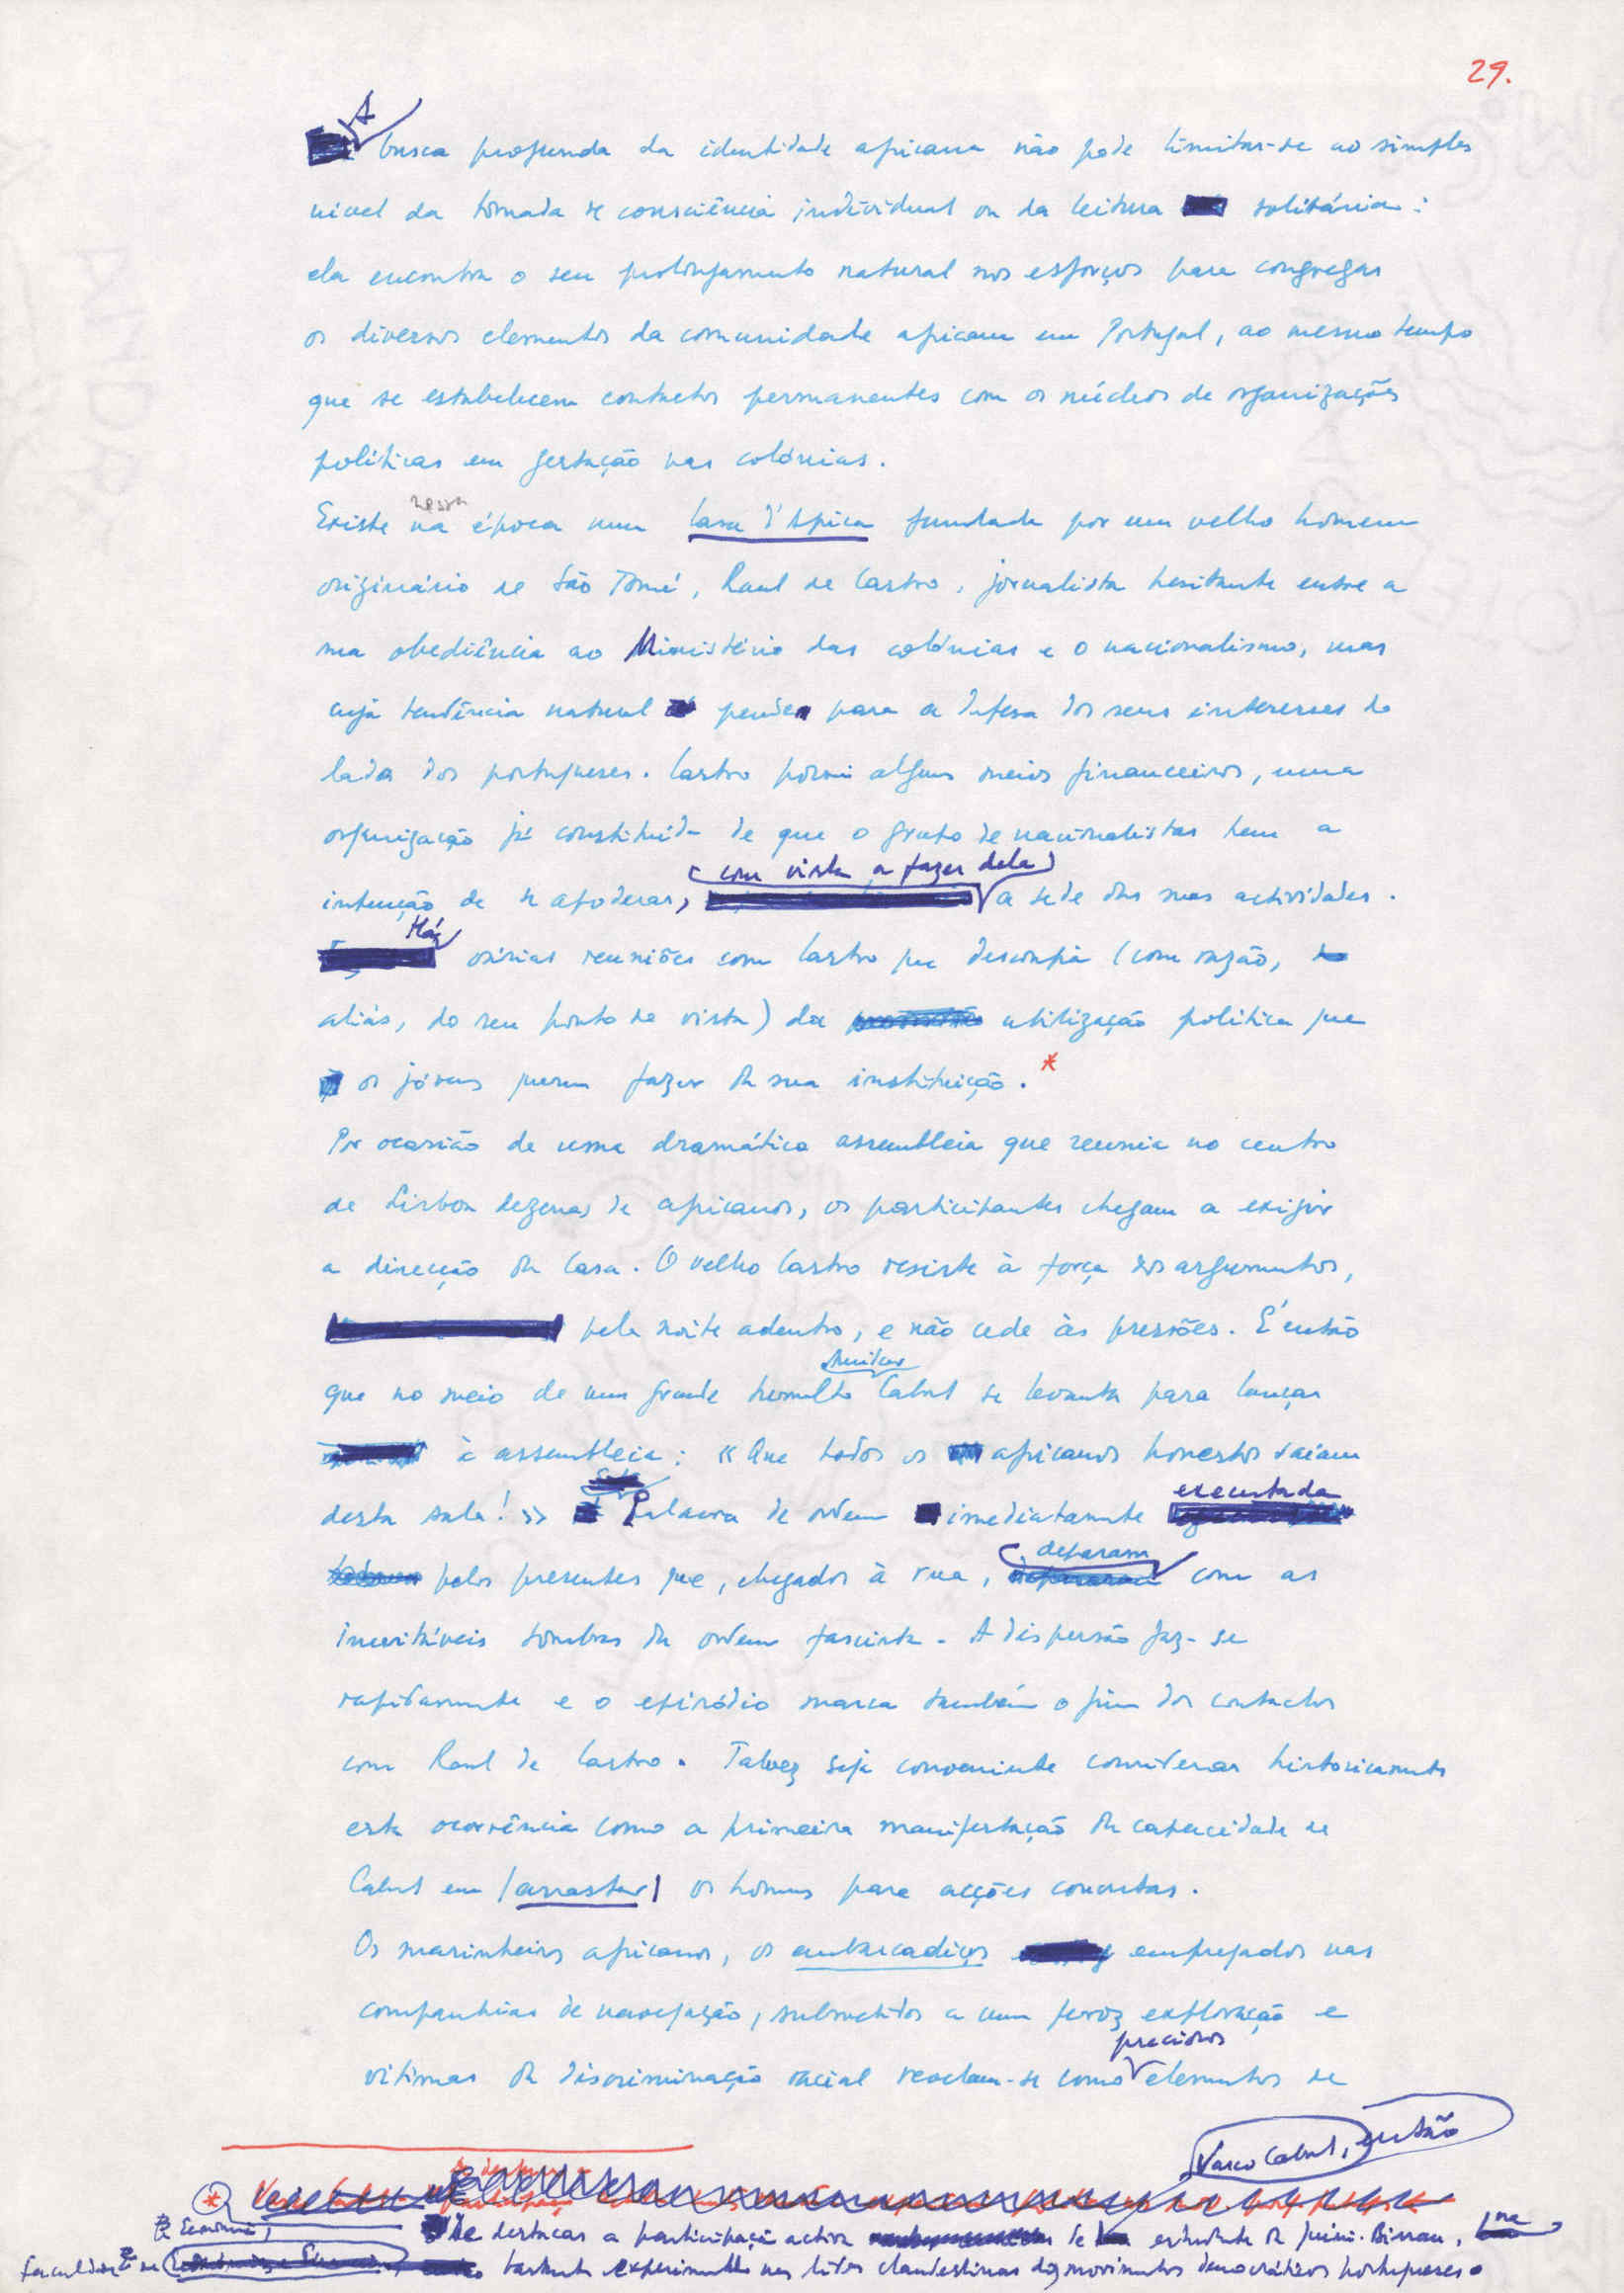 29.
A busca profunda da identidade africana não pode limitar-se ao simples
nível da tomada de consciência individual ou da leitura solitária:
ela encontra o seu prolongamento natural nos esforços para congregar
os diversos elementos da comunidade africana em Portugal, ao mesmo tempo
que se estabelecem contactos permanentes com os núcleos de organizações
políticas em gestação nas colónias.
nessa
Existe na época uma Casa d'África fundada por um velho homem
originário de São Tomé, Raul de Castro, jornalista hesitante entre a
sua obediência ao Ministério das colónias e o nacionalismo, mas
cuja tendência natural pende para a defesa dos seus interesses do
lado dos portugueses. Castro possui alguns meios financeiros, uma
organização já constituída de que o grupo de nacionalistas tem a
com vista a fazer dela
intenção de se apoderar, a sede das suas actividades.
Há várias reuniões com Castro que desconfia (com razão,
aliás, do seu ponto de vista) da utilização política que
os jovens querem fazer da sua instituição. *
Por ocasião de uma dramática assembleia que reunia no centro
de Lisboa dezenas de africanos, os participantes chegam a exigir
a direcção da Casa. O velho Castro resiste à força dos argumentos,
pela noite adentro, e não cede às pressões. É então
que no meio de um grande tumulto Cabral se levanta para lançar
à assembleia: «Que todos os africanos honestos saiam
executada
desta sala!» Palavra de ordem imediatamente
deparam
pelos presentes que, chegados à rua, com as
inevitáveis sombras da ordem fascista. A dispersão faz-se
rapidamente e o episódio marca também o fim dos contactos
com Raul de Castro. Talvez seja conveniente considerar historicamente
esta ocorrência como a primeira manifestação da capacidade de
Cabral em arrastar os homens para acções concretas.
Os marinheiros africanos, os embarcadiços empregados nas
companhias de navegação, submetidos a uma feroz exploração e
preciosos
vítimas da discriminação racial revelam-se como elementos de
Vasco Cabral, então
*
de Economia,
de destacar a participação activa de estudante da Guiné-Bissau, na
Faculdade de bastante experimentado nas lides clandestinas dos movimentos democráticos portugueses.